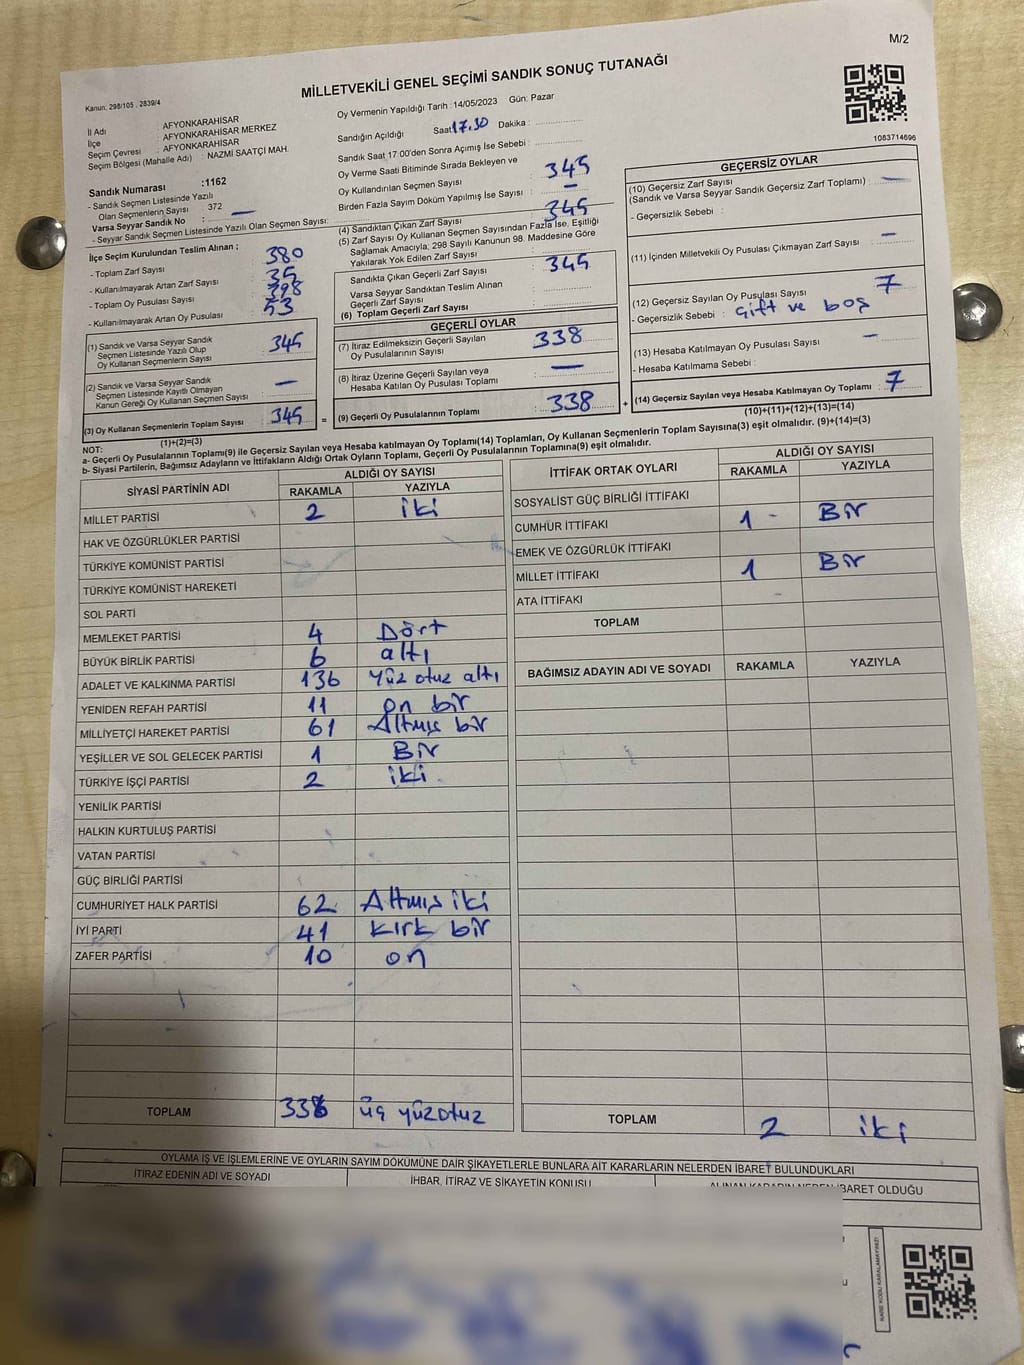 M/2
MİLLETVEKİLİ GENEL SEÇİMİ SANDIK SONUÇ TUTANAĞI
Kanun: 298/105 , 2839/4
İl Adı : AFYONKARAHİSAR
İlçe : AFYONKARAHİSAR MERKEZ
Seçim Çevresi : AFYONKARAHİSAR
Seçim Bölgesi (Mahalle Adı) : NAZMİ SAATÇİ MAH.
Sandık Numarası :1162
- Sandık Seçmen Listesinde Yazılı
Olan Seçmenlerin Sayısı : 372
Varsa Seyyar Sandık No : —
- Seyyar Sandık Seçmen Listesinde Yazılı Olan Seçmen Sayısı:
İlçe Seçim Kurulundan Teslim Alınan ;
- Toplam Zarf Sayısı : 380
- Kullanılmayarak Artan Zarf Sayısı : 35
- Toplam Oy Pusulası Sayısı : 398
- Kullanılmayarak Artan Oy Pusulası : 53
(1) Sandık ve Varsa Seyyar Sandık
Seçmen Listesinde Yazılı Olup
Oy Kullanan Seçmenlerin Sayısı : 345
(2) Sandık ve Varsa Seyyar Sandık
Seçmen Listesinde Kayıtlı Olmayan
Kanun Gereği Oy Kullanan Seçmen Sayısı : —
(3) Oy Kullanan Seçmenlerin Toplam Sayısı : 345 =
(1)+(2)=(3)
Oy Vermenin Yapıldığı Tarih : 14/05/2023 Gün: Pazar
Sandığın Açıldığı Saat 17.30 Dakika :
Sandık Saat 17:00'den Sonra Açımış İse Sebebi :
Oy Verme Saati Bitiminde Sırada Bekleyen ve
Oy Kullandırılan Seçmen Sayısı : 345
Birden Fazla Sayım Döküm Yapılmış İse Sayısı : —
(4) Sandıktan Çıkan Zarf Sayısı : 345
(5) Zarf Sayısı Oy Kullanan Seçmen Sayısından Fazla İse, Eşitliği
Sağlamak Amacıyla; 298 Sayılı Kanunun 98. Maddesine Göre
Yakılarak Yok Edilen Zarf Sayısı :
Sandıkta Çıkan Geçerli Zarf Sayısı : 345
Varsa Seyyar Sandıktan Teslim Alınan
Geçerli Zarf Sayısı :
(6) Toplam Geçerli Zarf Sayısı :
GEÇERLİ OYLAR
(7) İtiraz Edilmeksizin Geçerli Sayılan
Oy Pusulalarının Sayısı : 338
(8) İtiraz Üzerine Geçerli Sayılan veya
Hesaba Katılan Oy Pusulası Toplamı : —
(9) Geçerli Oy Pusulalarının Toplamı : 338 +
1083714696
GEÇERSİZ OYLAR
(10) Geçersiz Zarf Sayısı
(Sandık ve Varsa Seyyar Sandık Geçersiz Zarf Toplamı) : —
- Geçersizlik Sebebi :
(11) İçinden Milletvekili Oy Pusulası Çıkmayan Zarf Sayısı : —
(12) Geçersiz Sayılan Oy Pusulası Sayısı : 7
- Geçersizlik Sebebi : Çift ve boş
(13) Hesaba Katılmayan Oy Pusulası Sayısı : —
- Hesaba Katılmama Sebebi :
(14) Geçersiz Sayılan veya Hesaba Katılmayan Oy Toplamı : 7
(10)+(11)+(12)+(13)=(14)
NOT:
a- Geçerli Oy Pusulalarının Toplamı(9) ile Geçersiz Sayılan veya Hesaba katılmayan Oy Toplamı(14) Toplamları, Oy Kullanan Seçmenlerin Toplam Sayısına(3) eşit olmalıdır. (9)+(14)=(3)
b- Siyasi Partilerin, Bağımsız Adayların ve İttifakların Aldığı Ortak Oyların Toplamı, Geçerli Oy Pusulalarının Toplamına(9) eşit olmalıdır.
SİYASİ PARTİNİN ADI ALDIĞI OY SAYISI
RAKAMLA YAZIYLA
MİLLET PARTİSİ 2 iki
HAK VE ÖZGÜRLÜKLER PARTİSİ
TÜRKİYE KOMÜNİST PARTİSİ
TÜRKİYE KOMÜNİST HAREKETİ
SOL PARTİ
MEMLEKET PARTİSİ 4 Dört
BÜYÜK BİRLİK PARTİSİ 6 altı
ADALET VE KALKINMA PARTİSİ 136 Yüz otuz altı
YENİDEN REFAH PARTİSİ 11 on bir
MİLLİYETÇİ HAREKET PARTİSİ 61 Altmış bir
YEŞİLLER VE SOL GELECEK PARTİSİ 1 Bir
TÜRKİYE İŞÇİ PARTİSİ 2 iki
YENİLİK PARTİSİ
HALKIN KURTULUŞ PARTİSİ
VATAN PARTİSİ
GÜÇ BİRLİĞİ PARTİSİ
CUMHURİYET HALK PARTİSİ 62 Altmış iki
İYİ PARTİ 41 Kırk bir
ZAFER PARTİSİ 10 on
TOPLAM 336 üç yüz otuz
İTTİFAK ORTAK OYLARI ALDIĞI OY SAYISI
RAKAMLA YAZIYLA
SOSYALİST GÜÇ BİRLİĞİ İTTİFAKI
CUMHUR İTTİFAKI 1 - Bir
EMEK VE ÖZGÜRLÜK İTTİFAKI
MİLLET İTTİFAKI 1 Bir
ATA İTTİFAKI -
TOPLAM
BAĞIMSIZ ADAYIN ADI VE SOYADI RAKAMLA YAZIYLA
TOPLAM 2 iki
OYLAMA İŞ VE İŞLEMLERİNE VE OYLARIN SAYIM DÖKÜMÜNE DAİR ŞİKAYETLERLE BUNLARA AİT KARARLARIN NELERDEN İBARET BULUNDUKLARI
İTİRAZ EDENİN ADI VE SOYADI İHBAR, İTİRAZ VE ŞİKAYETİN KONUSU ALINAN KARARIN NEDEN İBARET OLDUĞU
KARE KODU KARALAMAYINIZ!